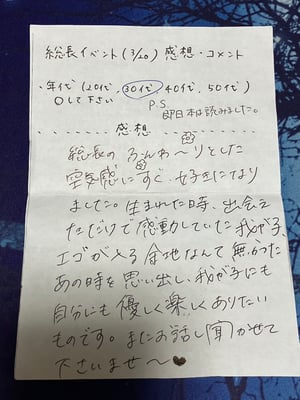 総長イベント(3/20) 感想・コメント
・年代(20代、30代、40代、50代)
○して下さい
P.S.
即日本は読みました。
感想
総長の ふんわ〜りとした
空気感にすぐ、大好きになり
ました。生まれた時、出会え
ただけで感動していた我が子、
エゴが入る余地なんて無かった
あの時を思い出し、我が子にも
自分にも優しく楽しくありたい
ものです。またお話し聞かせて
下さいませ〜♥